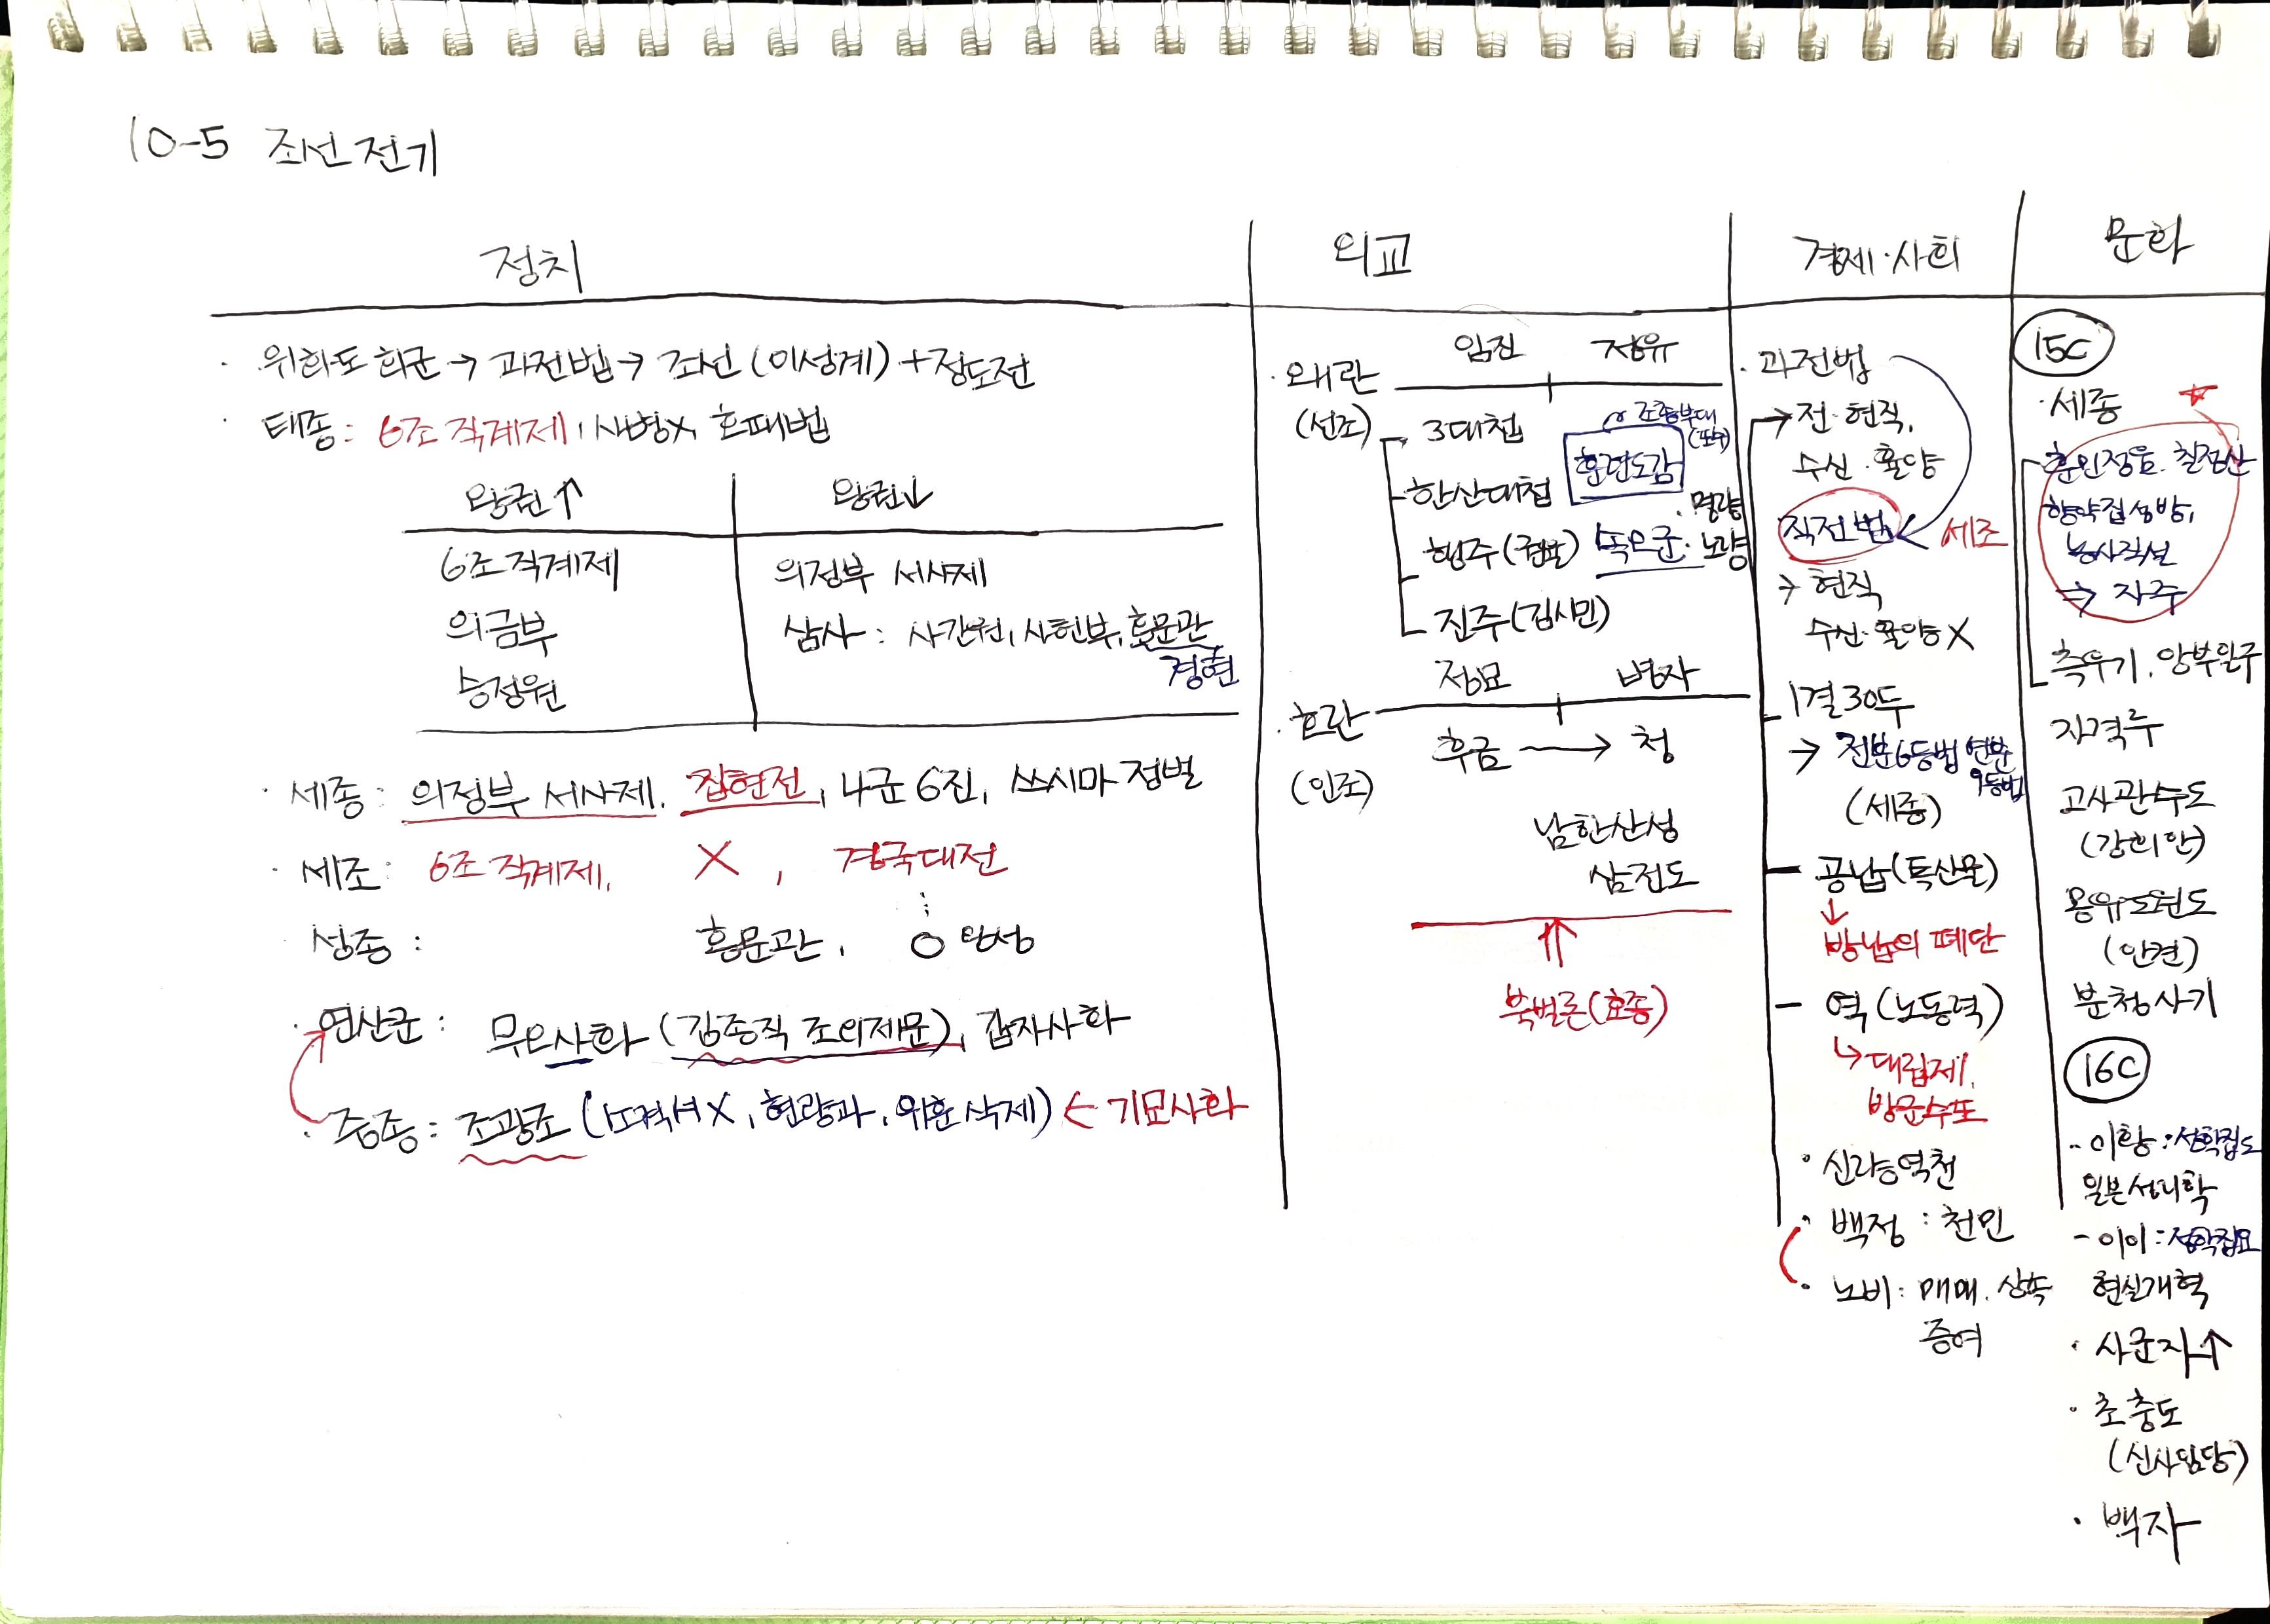 10-5 조선 전기
정치
· 위화도 회군 → 과전법 → 조선 (이성계) + 정도전
· 태종 : 6조 직계제, 사병X, 호패법
왕권↑ 왕권↓
6조 직계제 의정부 서사제
의금부 삼사 : 사간원, 사헌부, 홍문관
경연
승정원
· 세종 : 의정부 서사제, 집현전, 4군 6진, 쓰시마 정벌
· 세조 : 6조 직계제, X, 경국대전
성종 : 홍문관, O 완성
· 연산군 : 무오사화 (김종직 조의제문), 갑자사화
· 중종 : 조광조 (소격서X, 현량과, 위훈 삭제) ← 기묘사화
외교
임진 정유
· 왜란
(선조)
3대첩
조총부대
(포수)
훈련도감
한산대첩
· 명량
행주 (권율) 속오군 · 노량
진주 (김시민)
정묘 병자
· 호란
(인조)
후금 → 청
남한산성
삼전도
북벌론 (효종)
경제·사회
· 과전법
→ 전·현직,
수신·휼양
직전법 세조
→ 현직
수신·휼양X
1결 30두
→ 전분6등법 연분
9등법
(세종)
- 공납 (특산물)
↓
방납의 폐단
- 역 (노동력)
↳ 대립제,
방군수포
· 신량역천
· 백정 : 천민
· 노비 : 매매, 상속
증여
문화
15C
· 세종
훈민정음, 칠정산
향약집성방,
농사직설
⇒ 자주
측우기, 앙부일구
자격루
고사관수도
(강희안)
몽유도원도
(안견)
분청사기
16C
- 이황 : 성학십도
일본 성리학
- 이이 : 성학집요
현실개혁
· 사군자↑
· 초충도
(신사임당)
· 백자